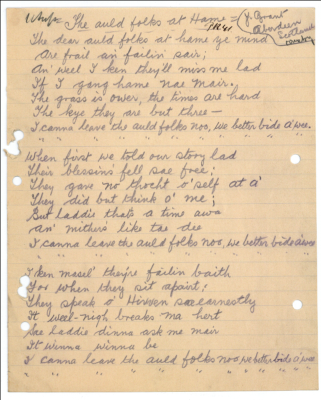 The auld folks at Hame =
J. Grant
Aberdeen
Scotland
The dear auld folks at hame ye mind
Are frail an' failin' sair;
An' weel I ken they'll miss me lad
If I gang hame nae mair.
The grass is ower, the times are hard
The kye they are but three —
I canna leave the auld folks noo, we better bide a wee.
When first we told our story lad
Their blessins' fell sae free;
They gave no thocht o' self at a'
They did but think o' me;
But laddie thats a time awa
An' mither's like tae dee
I canna leave the auld folks noo, we better bide a wee
I ken masel' they're failin baith
For when they sit apairt;
They speak o' Hivven sae earnestly
It weel-nigh breaks ma hert
Sae laddie dinna ask me mair
It winna winna be
I canna leave the auld folks noo, we better bide a' wee